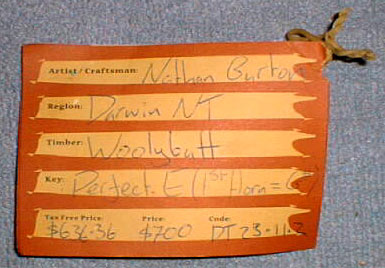 Artist / Craftsman: Nathan Burton
Region: Darwin NT
Timber: Woolybutt
Key: Perfect E (1st Horn = G)
Tax Free Price: Price: Code:
$636.36 $700 DT 23-11-2